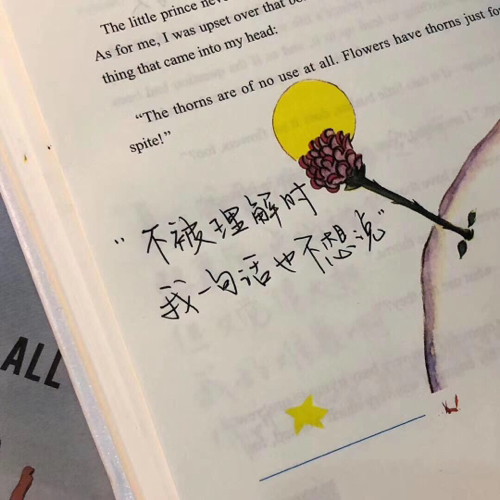 The little prince neve
As for me, I was upset over that bo
thing that came into my head:
“The thorns are of no use at all. Flowers have thorns just fo
spite!”
“不被理解时
我一句话也不想说”
ALL